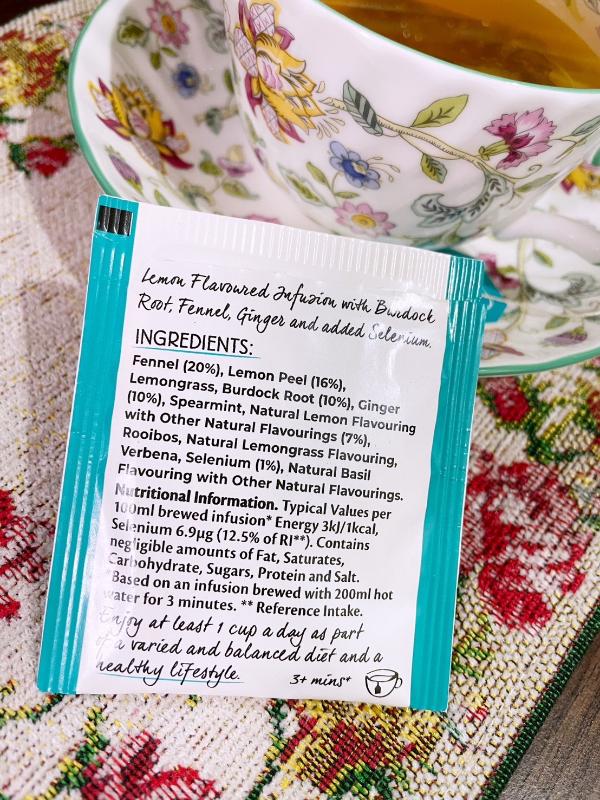 Lemon Flavoured Infusion with Burdock
Root, Fennel, Ginger and added Selenium.
INGREDIENTS:
Fennel (20%), Lemon Peel (16%),
Lemongrass, Burdock Root (10%), Ginger
(10%), Spearmint, Natural Lemon Flavouring
with Other Natural Flavourings (7%),
Rooibos, Natural Lemongrass Flavouring,
Verbena, Selenium (1%), Natural Basil
Flavouring with Other Natural Flavourings.
Nutritional Information. Typical Values per
100ml brewed infusion* Energy 3kJ/1kcal,
Selenium 6.9µg (12.5% of RI**). Contains
negligible amounts of Fat, Saturates,
Carbohydrate, Sugars, Protein and Salt.
*Based on an infusion brewed with 200ml hot
water for 3 minutes. ** Reference Intake.
Enjoy at least 1 cup a day as part
of a varied and balanced diet and a
healthy lifestyle.
3+ mins*